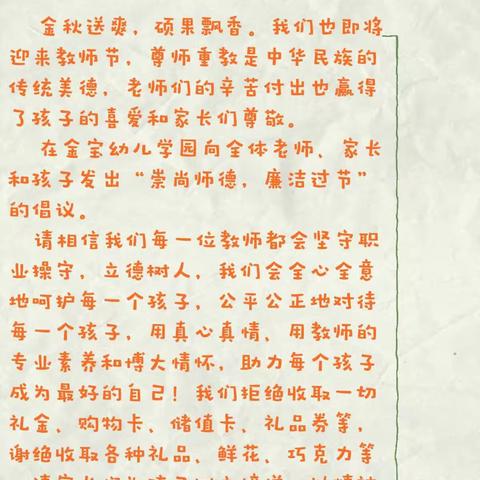 金秋送爽，硕果飘香。我们也即将
迎来教师节，尊师重教是中华民族的
传统美德，老师们的辛苦付出也赢得
了孩子的喜爱和家长们尊敬。
在金宝幼儿学园向全体老师、家长
和孩子发出“崇尚师德，廉洁过节”
的倡议。
请相信我们每一位教师都会坚守职
业操守，立德树人，我们会全心全意
地呵护每一个孩子，公平公正地对待
每一个孩子，用真心真情、用教师的
专业素养和博大情怀，助力每个孩子
成为最好的自己！我们拒绝收取一切
礼金、购物卡、储值卡、礼品券等，
谢绝收取各种礼品、鲜花、巧克力等